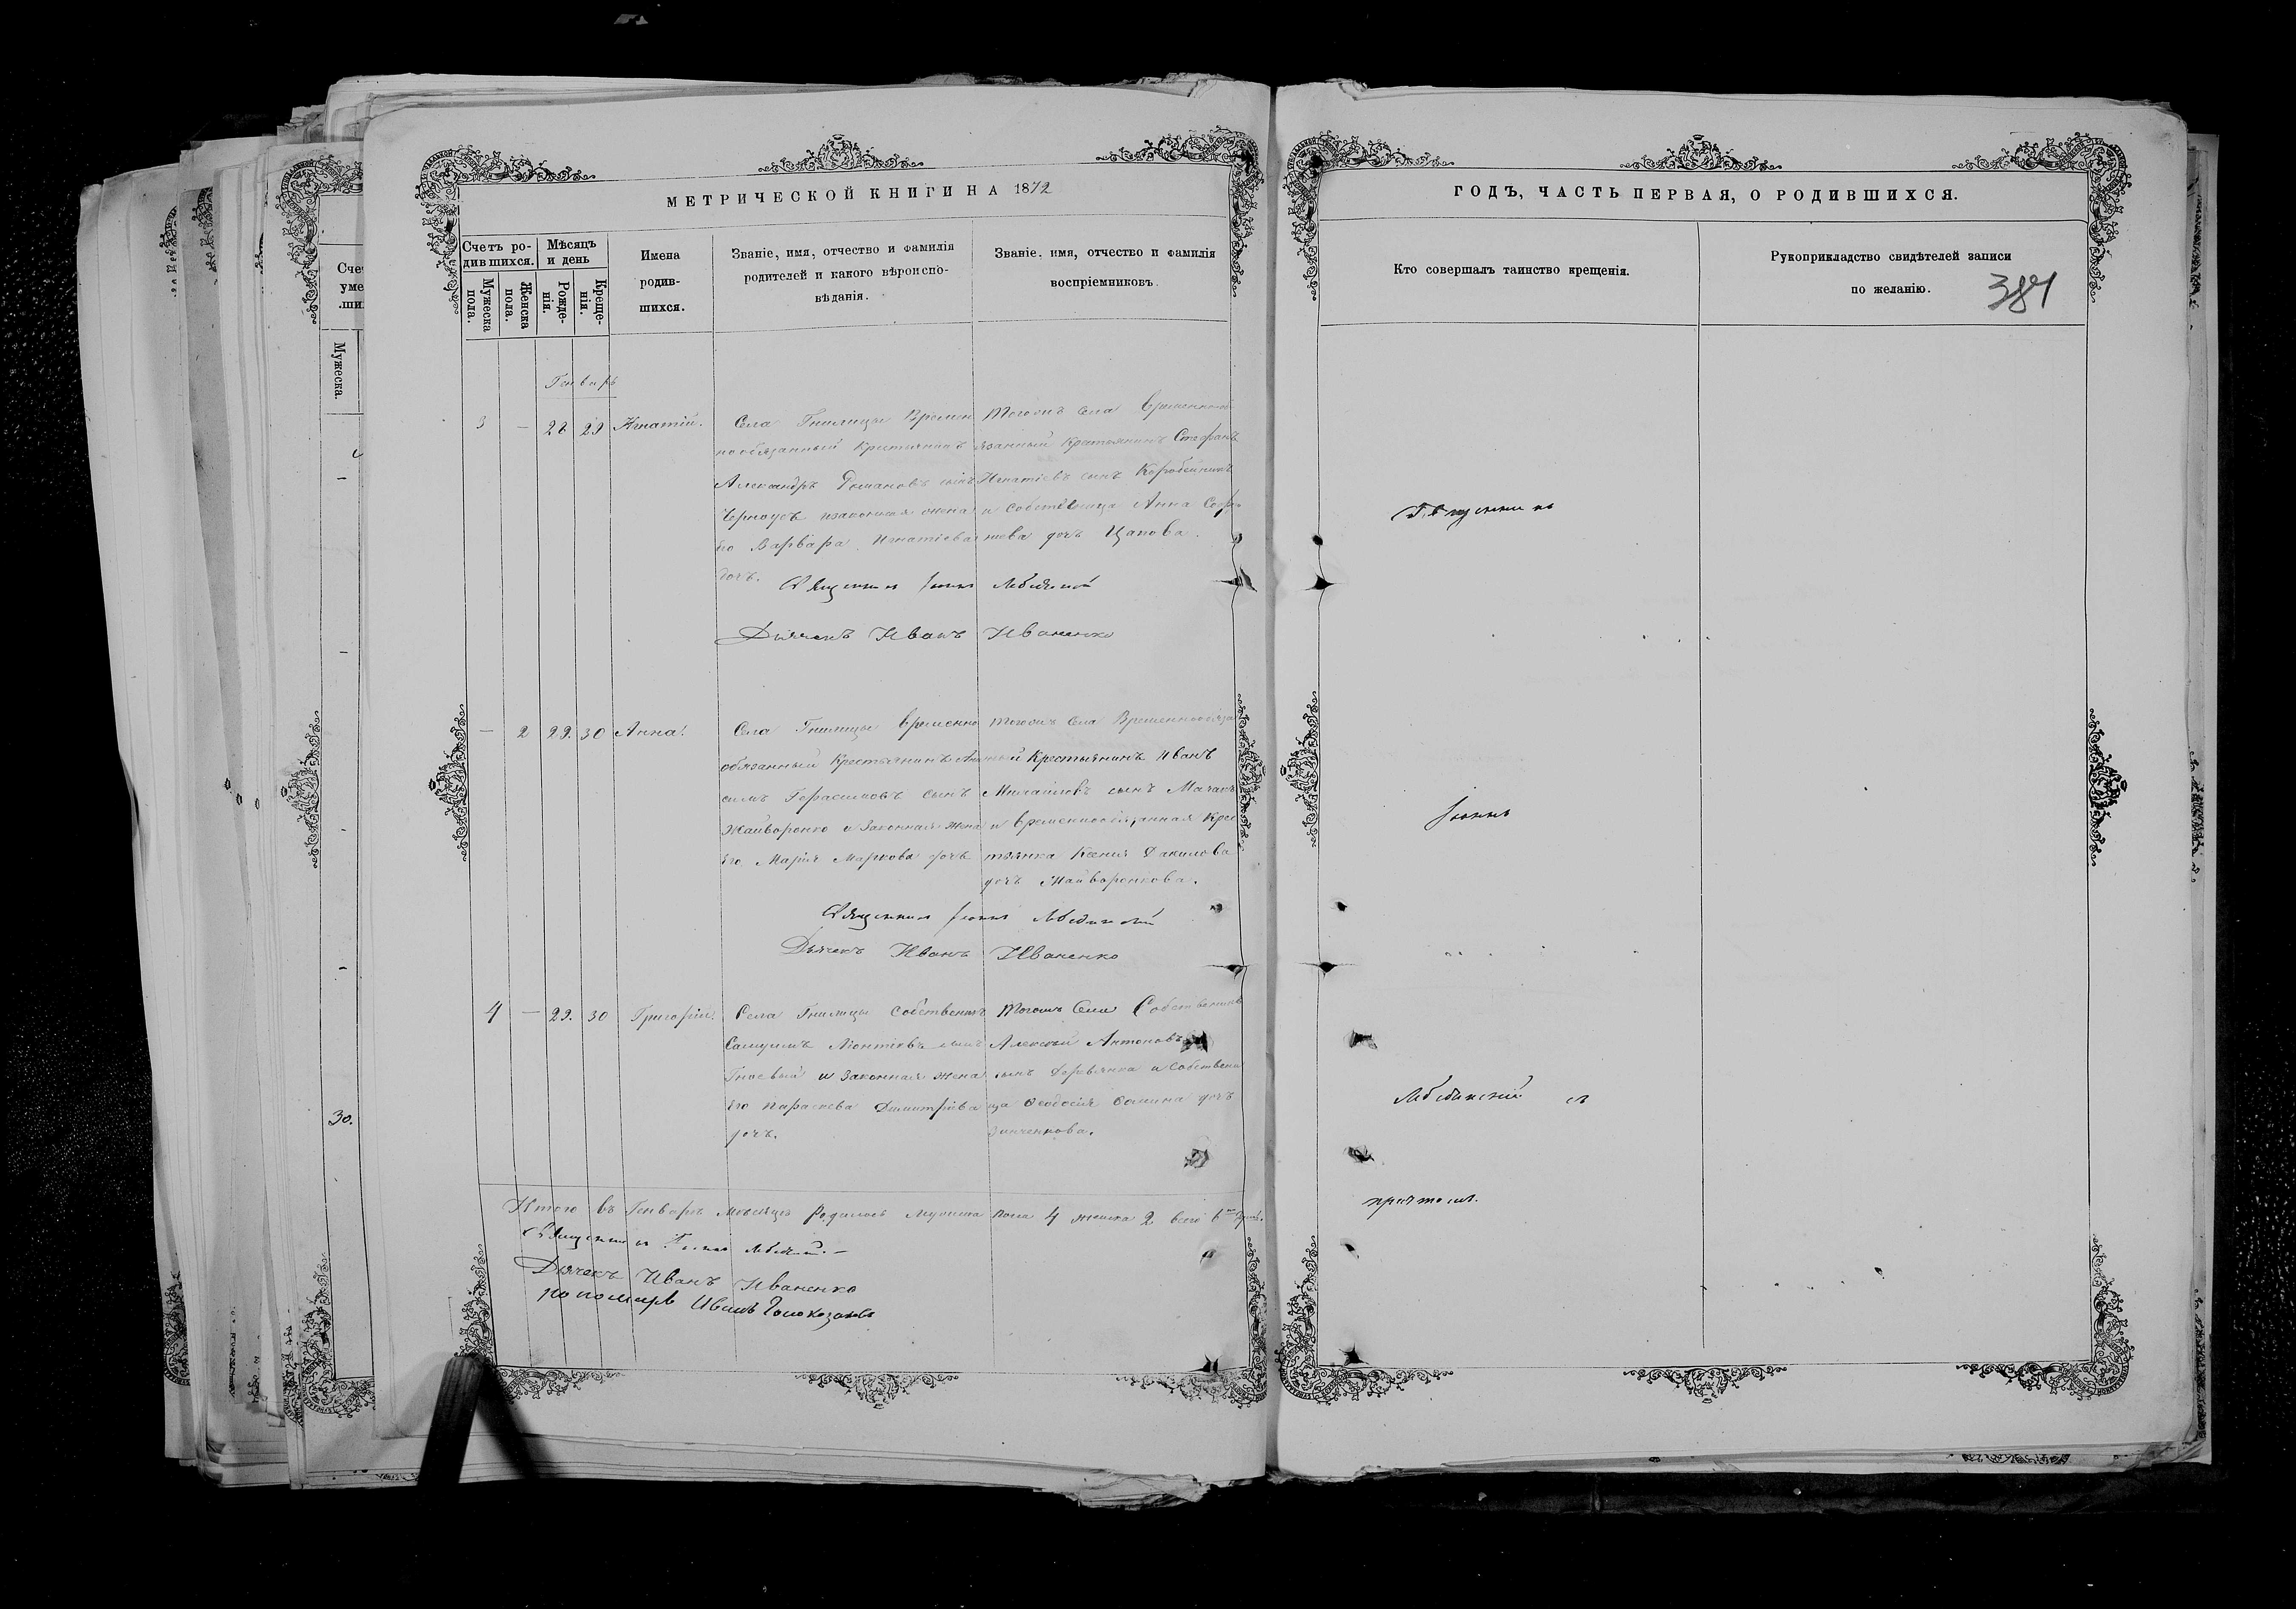 МЕТРИЧЕСКОЙ КНИГИ НА 1872
Счетъ родившихся.
Мѣсяцъ и день
Имена родившихся.
Званіе, имя, отчество и фамилія родителей и какого вѣроисповѣданія.
Званіе, имя, отчество и фамилія воспріемниковъ.
Мужеска пола.
Женска пола.
Рожденія.
Крещенія.
Генварь
3 — 28 29 Игнатій.
Села Гнилицы Времен
нообязанный Крестьянинъ
Александръ Романовъ сынъ
Черноусъ и законная жена
его Варвара Игнатіева
дочь.
Тогожъ Села Временнооб
язанный Крестьянинъ Стефанъ
Игнатіевъ сынъ Коробейникъ
и Собственница Анна
дочь Цапова.
Священникъ Іоаннъ
Дьячекъ Иванъ Иваненко
— 2 29. 30 Анна.
Села Гнилицы Временно
обязанный Крестьянинъ
Герасимовъ сынъ
Жайворонко и Законная жена
его Марія Маркова дочь
Тогожъ Села Временнообяза
нный Крестьянинъ Иванъ
Михаиловъ сынъ
и временнообязанная Крес
тьянка Ксенія Данилова
дочь Жайворонкова.
Священникъ Іоаннъ
Дьячекъ Иванъ Иваненко
4 — 29. 30 Григорій.
Села Гнилицы Собственникъ
Самуилъ Леонтіевъ сынъ
Гноевый и Законная жена
его Параскева Димитріева
дочь.
Тогожъ Села Собственникъ
Алексѣй Антоновъ
сынъ Деревянка и Собственни
ца Ѳеодосія Ѳомина дочь
Зинченкова.
Итого въ Генварѣ Мѣсяцѣ Родилось мужеска пола 4 женска 2 всего 6
Священникъ Іоаннъ
Дьячекъ Иванъ Иваненко
Пономарь Иванъ
Счет
уме
.ши
Мужеска.
30.
ГОДЪ, ЧАСТЬ ПЕРВАЯ, О РОДИВШИХСЯ.
Кто совершалъ таинство крещенія.
Рукоприкладство свидѣтелей записи по желанію.
384
Священникъ
Іоаннъ
Лебединскій съ
причтомъ.